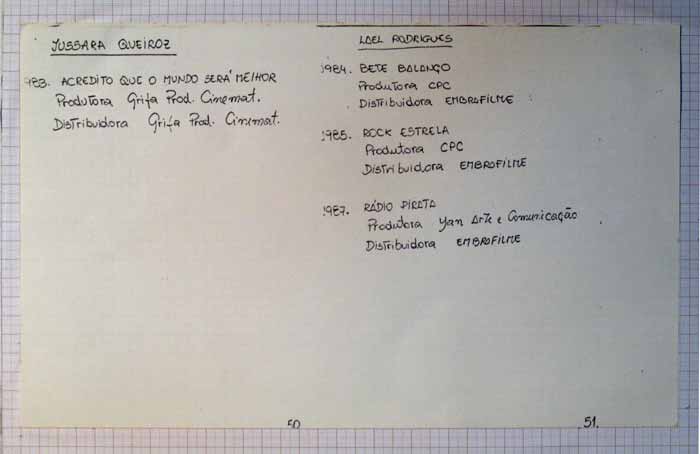 JUSSARA QUEIROZ
983. ACREDITO QUE O MUNDO SERÁ MELHOR
Produtora Grifa Prod. Cinemat.
Distribuidora Grifa Prod. Cinemat.
50
LAEL RODRIGUES
1984. BETE BALANÇO
Produtora CPC
Distribuidora EMBRAFILME
1985. ROCK ESTRELA
Produtora CPC
Distribuidora EMBRAFILME
1987. RÁDIO PIRATA
Produtora Yan Arte e Comunicação
Distribuidora EMBRAFILME
51.